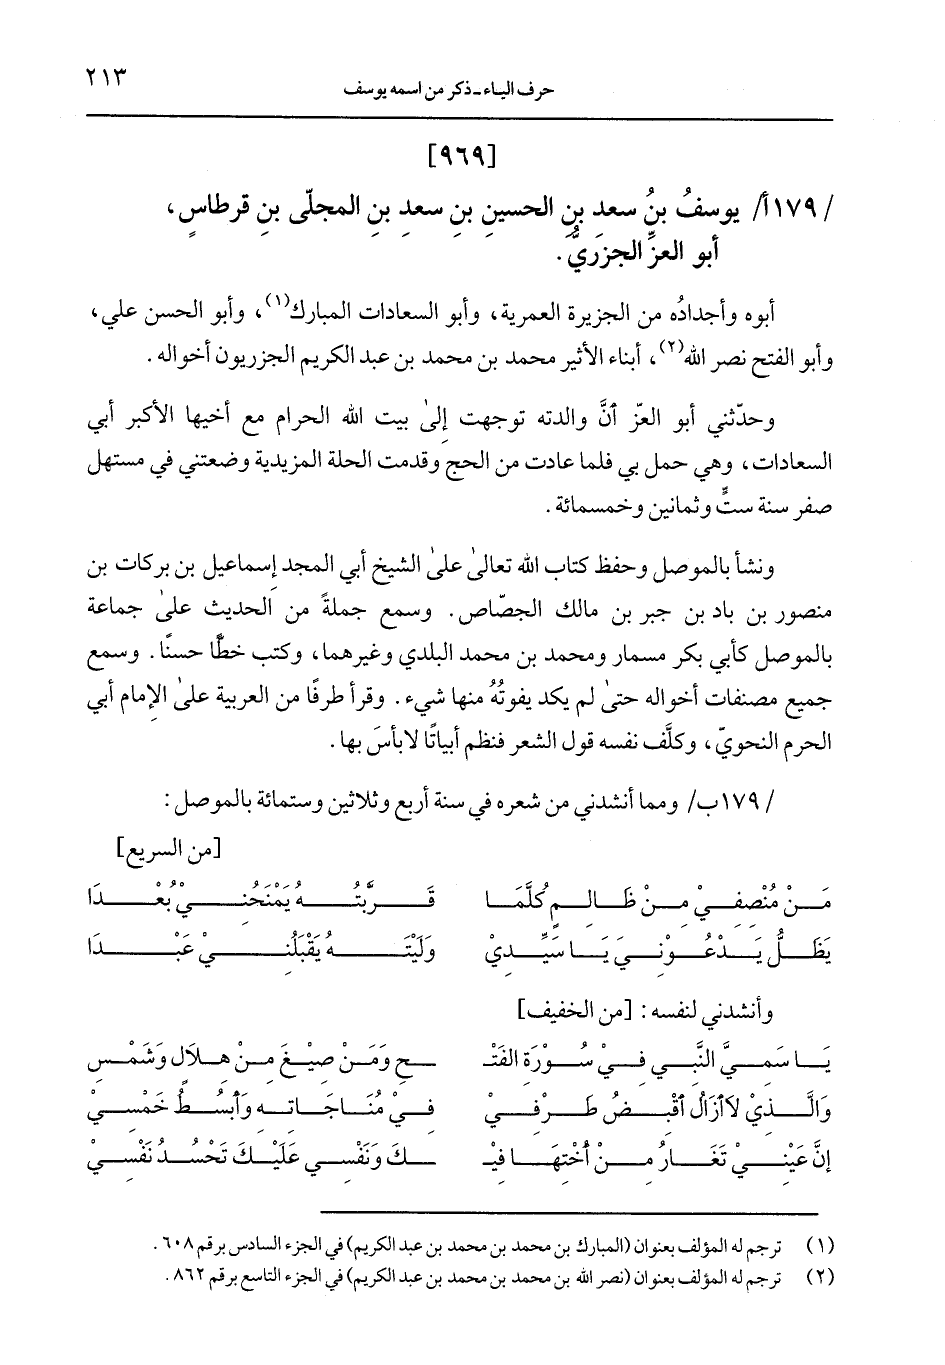 حرف الياء ـ ذكر من اسمه يوسف
٢١٣
[٩٦٩]
/١٧٩أ/ يوسفُ بنُ سعدِ بنِ الحسينِ بنِ سعدِ بنِ المجلّى بنِ قرطاسٍ،
أبو العزِّ الجزريُّ.
أبوه وأجدادُه من الجزيرة العمرية، وأبو السعادات المبارك(١)، وأبو الحسن علي،
وأبو الفتح نصر الله(٢)، أبناء الأثير محمد بن محمد بن عبد الكريم الجزريون أخواله.
وحدّثني أبو العزّ أنَّ والدته توجهت إلىٰ بيت الله الحرام مع أخيها الأكبر أبي
السعادات، وهي حمل بي فلما عادت من الحج وقدمت الحلة المزيدية وضعتني في مستهل
صفر سنة ستٍّ وثمانين وخمسمائة.
ونشأ بالموصل وحفظ كتاب الله تعالىٰ علىٰ الشيخ أبي المجد إسماعيل بن بركات بن
منصور بن باد بن جبر بن مالك الجصّاص. وسمع جملةً من الحديث علىٰ جماعة
بالموصل كأبي بكر مسمار ومحمد بن محمد البلدي وغيرهما، وكتب خطًّا حسنًا. وسمع
جميع مصنفات أخواله حتىٰ لم يكد يفوتُهُ منها شيء. وقرأ طرفًا من العربية علىٰ الإمام أبي
الحرم النحويّ، وكلَّف نفسه قول الشعر فنظم أبياتًا لابأسَ بها.
/١٧٩ب/ ومما أنشدني من شعره في سنة أربع وثلاثين وستمائة بالموصل:
[من السريع]
مَنْ مُنْصِفِيْ مِنْ ظَالِمٍ كُلَّمَا قَرَّبْتُهُ يَمْنَحُنِيْ بُعْدَا
يَظَلُّ يَدْعُوْنِيَ يَا سَيِّدِيْ وَلَيْتَهُ يَقْبَلُنِيْ عَبْدَا
وأنشدني لنفسه: [من الخفيف]
يَا سَمِيَّ النَّبِي فِيْ سُوْرَةِ الفَتْـ ـحِ وَمَنْ صِيْغَ مِنْ هِلاَلٍ وَشَمْسِ
وَالَّذِيْ لاَأزَالُ أقْبِضُ طَرْفِيْ فِيْ مُنَاجَاتِهِ وَأبْسُطُ خَمْسِيْ
إنَّ عَيْنِيْ تَغَارُ مِنْ أُخْتِهَا فِيْـ ـكَ وَنَفْسِي عَلَيْكَ تَحْسُدُ نَفْسِيْ
(١) ترجم له المؤلف بعنوان (المبارك بن محمد بن محمد بن عبد الكريم) في الجزء السادس برقم ٦٠٨.
(٢) ترجم له المؤلف بعنوان (نصر الله بن محمد بن محمد بن عبد الكريم) في الجزء التاسع برقم ٨٦٢.